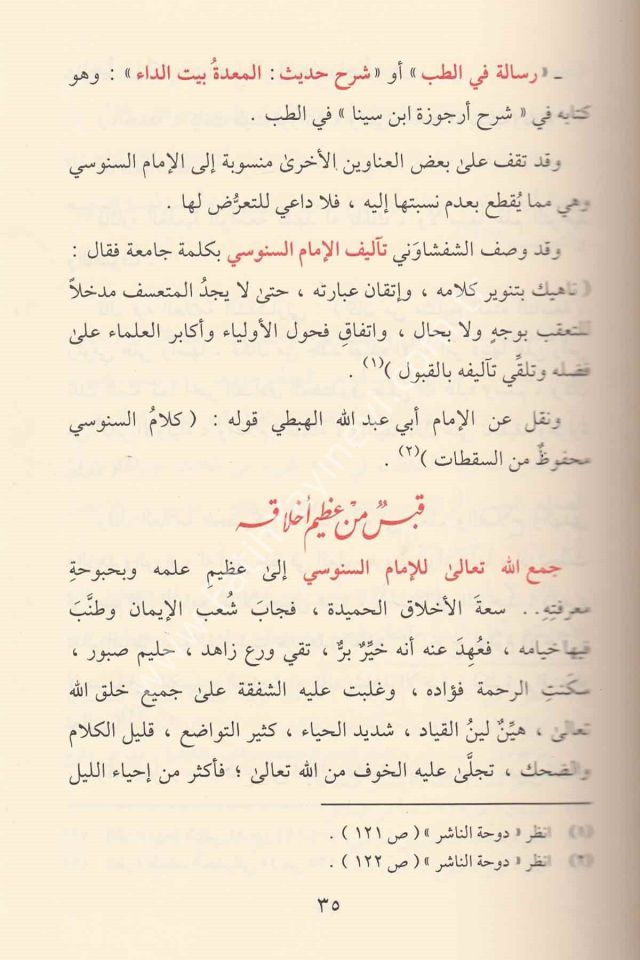 ـ « رسالة في الطب » أو « شرح حديث : المعدةُ بيت الداء » : وهو
كتابه في « شرح أرجوزة ابن سينا » في الطب .
وقد تقف علىٰ بعض العناوين الأخرىٰ منسوبة إلى الإمام السنوسي
وهي مما يُقطع بعدم نسبتها إليه ، فلا داعي للتعرُّض لها .
وقد وصف الشفشاوَني تآليف الإمام السنوسي بكلمة جامعة فقال :
( ناهيك بتنوير كلامه ، وإتقان عبارته ، حتىٰ لا يجدُ المتعسف مدخلاً
للتعقب بوجهٍ ولا بحال ، واتفاقِ فحول الأولياء وأكابر العلماء علىٰ
فضله وتلقِّي تآليفه بالقبول )(١) .
ونقل عن الإمام أبي عبد الله الهبطي قوله : ( كلامُ السنوسي
محفوظٌ من السقطات )(٢) .
قبسٌ من عظيم أخلاقه
جمع الله تعالىٰ للإمام السنوسي إلىٰ عظيمِ علمه وبحبوحةِ
معرفتِهِ .. سعةَ الأخلاق الحميدة ، فجابَ شُعب الإيمان وطنَّبَ
فيها خيامه ، فعُهِدَ عنه أنه خيِّرٌ برٌّ ، تقي ورع زاهد ، حليم صبور ،
سكنتِ الرحمة فؤاده ، وغلبت عليه الشفقة علىٰ جميع خلق الله
تعالىٰ ، هيِّنٌ لينُ القياد ، شديد الحياء ، كثير التواضع ، قليل الكلام
والضحك ، تجلَّىٰ عليه الخوف من الله تعالىٰ ؛ فأكثر من إحياء الليل
(١) انظر « دوحة الناشر » ( ص ١٢١ ) .
(٢) انظر « دوحة الناشر » ( ص ١٢٢ ) .
٣٥